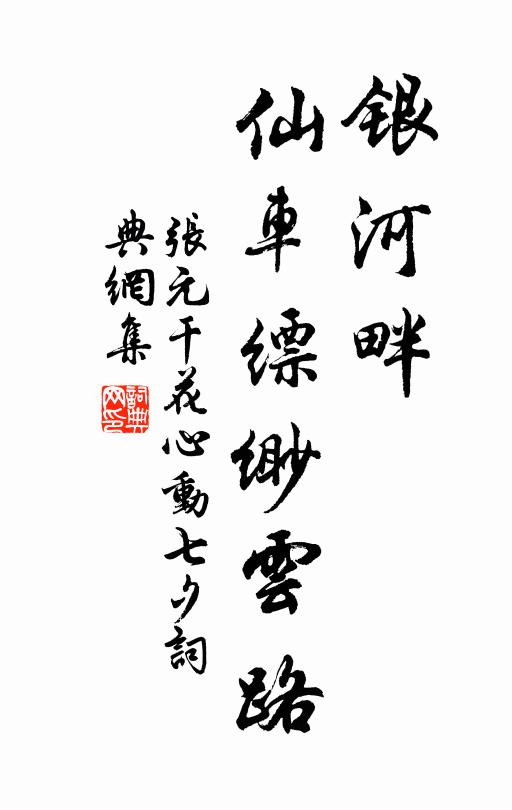 銀河畔
仙車縹緲雲路
張元干花心動七夕詞
典網集
詞典網印